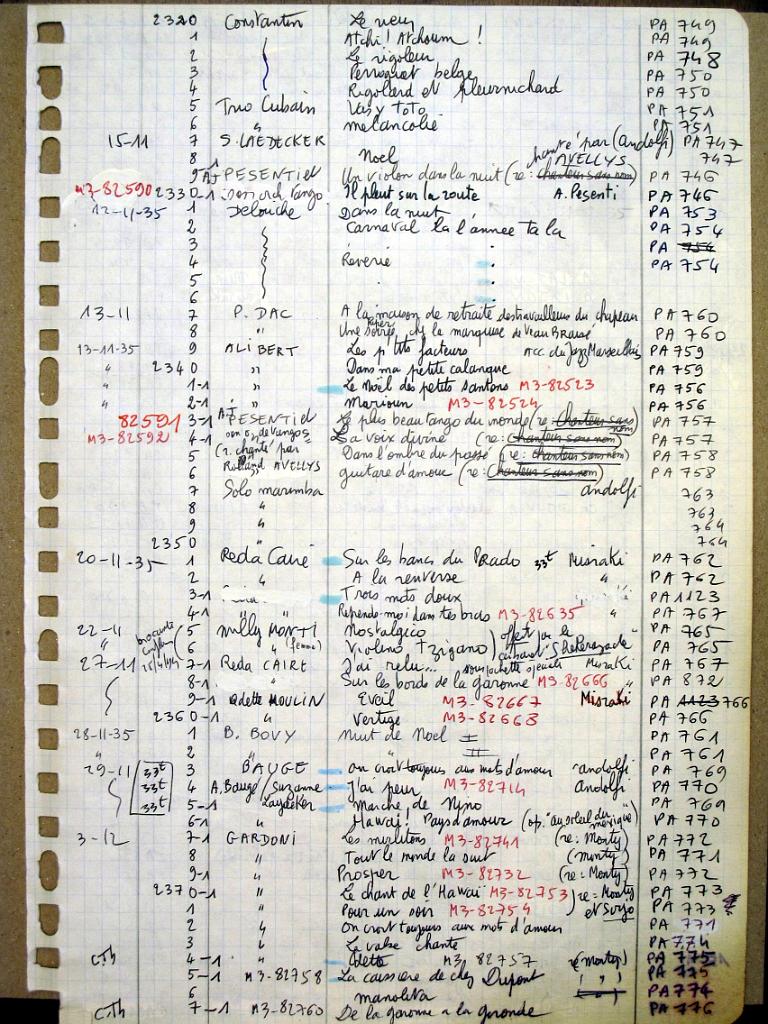 2320 Constantin Le vieux PA 749
1 Atchi! Atchoum! PA 749
2 Le rigoleur PA 748
3 Perroquet belge PA 750
4 Rigolard et pleurnichard PA 750
5 Trio Cubain Vas y toto PA 751
6 " melancolie PA 751
15-11 7 S. LAEDECKER chanté par (andolfi) PA 747
8 Noel AVELLYS 747
9 PESENTI et Un violon dans la nuit (re: chanteur sans nom) PA 746
M7-82590 2330-1 son orch tango Il pleut sur la route A. Pesenti PA 746
12-11-35 1 Delouche Dans la nuit PA 753
2 Carnaval la l'année ta la PA 754
3 PA 754
4 Reverie PA 754
5
6
13-11 7 P. DAC A la maison de retraite des travailleurs du chapeau PA 760
8 " Une soirée chez la marquise de Veau Braisé PA 760
13-11-35 9 ALIBERT Les p'tits facteurs acc du Jazz Marseillais PA 759
" 2340 " Dans ma petite calanque PA 759
" 1-1 " Le Noël des petits santons M3-82523 PA 756
" 2-1 " Marioun M3-82524 PA 756
82591 3-1 A-J PESENTI et Le plus beau tango du monde (re: chanteur sans nom) PA 757
M3-82592 4-1 son o. de tangos La voix divine (re: chanteur sans nom) PA 757
5 (r. chanté par Dans l'ombre du passé (re: chanteur sans nom) PA 758
6 Rolland AVELLYS guitare d'amour (re: chanteur sans nom) PA 758
7 Solo marimba andolfi 763
8 " 763
9 " 764
2350 " 764
20-11-35 1 Reda Caire Sur les bancs du Prado 33t Misraki PA 762
2 " A la renverse " PA 762
3-1 Trois mots doux PA 1123
4-1 " " Reprends-moi dans tes bras M3-82635 " PA 767
22-11 5 Willy MONTI Nostalgico PA 765
6 " (femme) Violino Tzigano) offert par le cabaret Sheherazade PA 765
27-11 7-1 Reda CAIRE J'ai relu... sous pochette speciale Misraki PA 767
8-1 " Sur les bords de la garonne M3-82666 " PA 872
9-1 Odette MOULIN Eveil M3-82667 Misraki PA 1123 766
2360-1 " Vertige M3-82668 PA 766
28-11-35 1 B. BOVY Nuit de Noel I PA 761
" 2 " " II PA 761
29-11 33t 3 BAUGE on croit toujours aux mots d'amour andolfi PA 769
33t 4 A. Baugé / Suzanne J'ai peur M3-82714 Andolfi PA 770
33t 5-1 Laydeker Marche de Nino " PA 769
6-1 " Hawaï! Pays d'amour (op. "au soleil du mexique") PA 770
3-12 7-1 GARDONI Les mirlitons M3-82741 (re: Monty) PA 772
8 " Tout le monde la suit (monty) PA 771
9-1 " Prosper M3-82732 (re: Monty) PA 772
2370-1 " Le chant de l'Hawaï M3-82753) re: Monty PA 773
1 " Pour un soir M3-82754) et Surjo PA 773
2 " On croit toujours aux mots d'amour PA 771
3 " La valse chante PA 774
C.Th 4-1 " M3 82757 (monty) PA 775
5-1 M3-82758 La caissiere de chez Dupont ( " , " ) PA 775
6 manolita PA 774
C.Th 7-1 M3-82760 De la garonne a la gironde PA 776